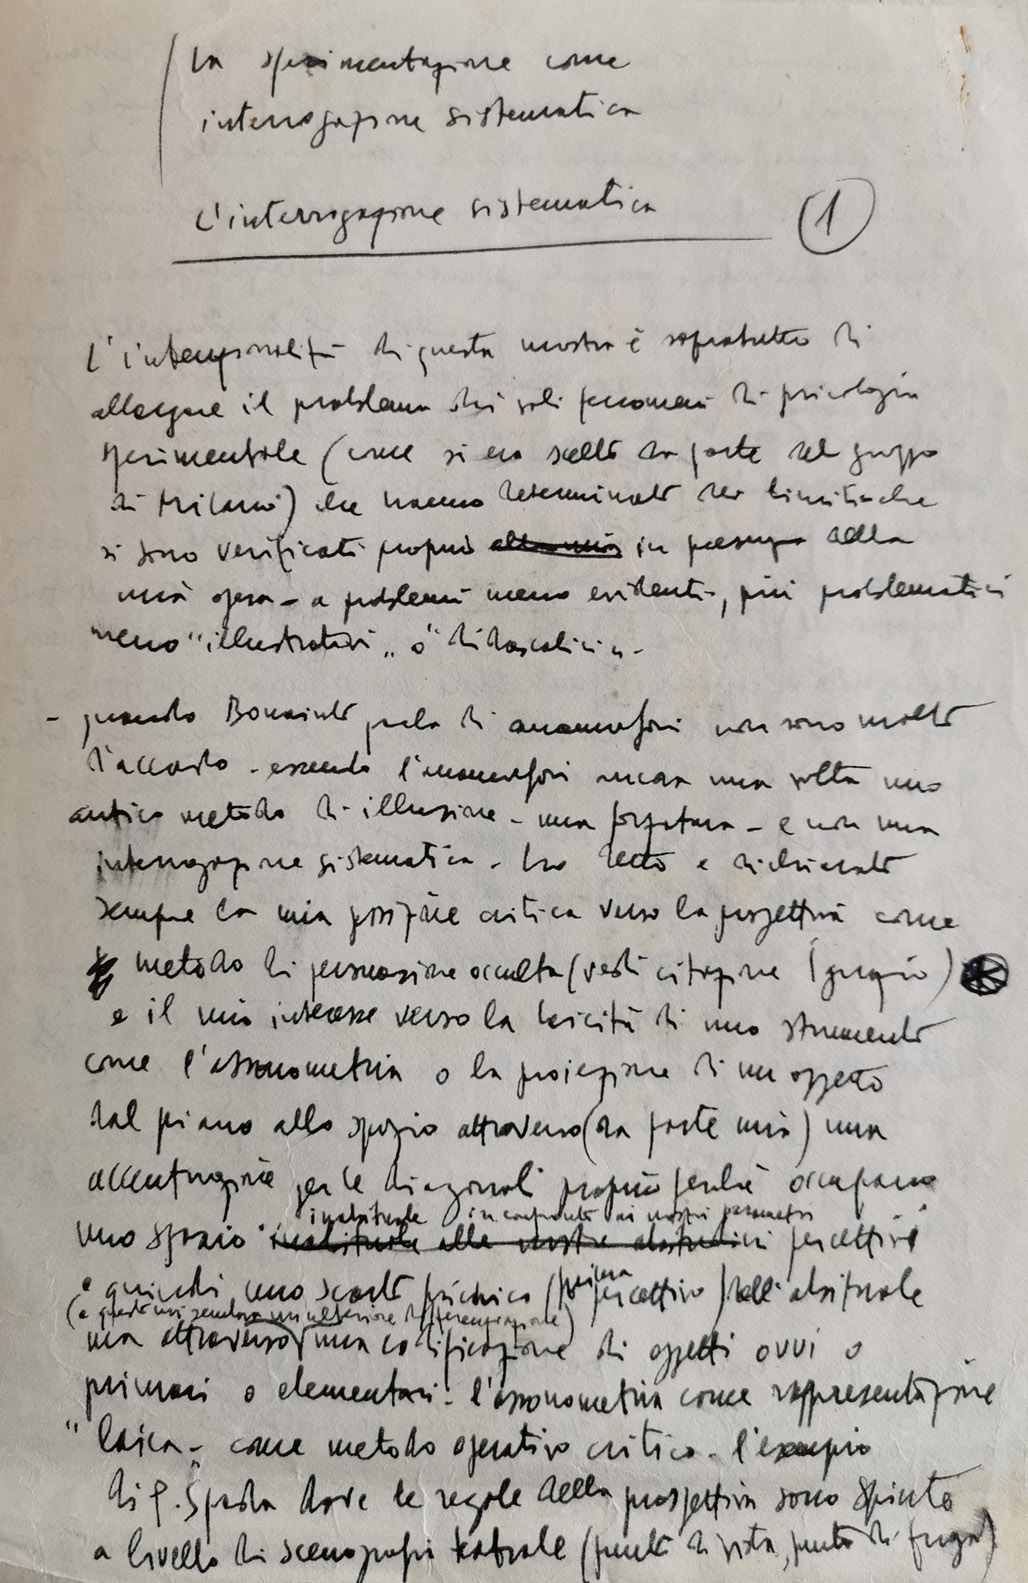 La sperimentazione come
interrogazione sistematica
L'interrogazione sistematica
1
L'intenzionalità di questa mostra è sopratutto di
allargare il problema dai soli fenomeni di psicologia
sperimentale (come si era scelto da parte del gruppo
di Milano) che hanno determinato dei limiti che
si sono verificati proprio in presenza della
mia opera - a problemi meno evidenti, più problematici
meno "illustrativi" o "didascalici" -
- quando Bonaiuto parla di anamorfosi non sono molto
d'accordo - essendo l'anamorfosi ancora una volta uno
antico metodo di illusione - una forzatura - e non una
interrogazione sistematica - ho detto e dichiarato
sempre la mia posizione critica verso la prospettiva come
metodo di persuasione occulta (vedi citazione)
e il mio interesse verso la laicità di uno strumento
come l'assonometria o la proiezione di un oggetto
dal piano allo spazio attraverso (da parte mia) una
accentuazione per le diagonali proprio perché occupano
inabituale in confronto ai nostri parametri
uno spazio inabituale alle nostre abitudini percettivi
e quindi uno scarto psichico (prima percettivo) dall'abituale
(e questo mi sembra un'ulteriore differenziazione)
ma attraverso una codificazione di oggetti ovvi o
primari o elementari - l'assonometria come rappresentazione
"laica" - come metodo operativo critico - l'esempio
di P. Spada dove le regole della prospettiva sono spinte
a livello di scenografia teatrale (punti di vista, punti di fuga)